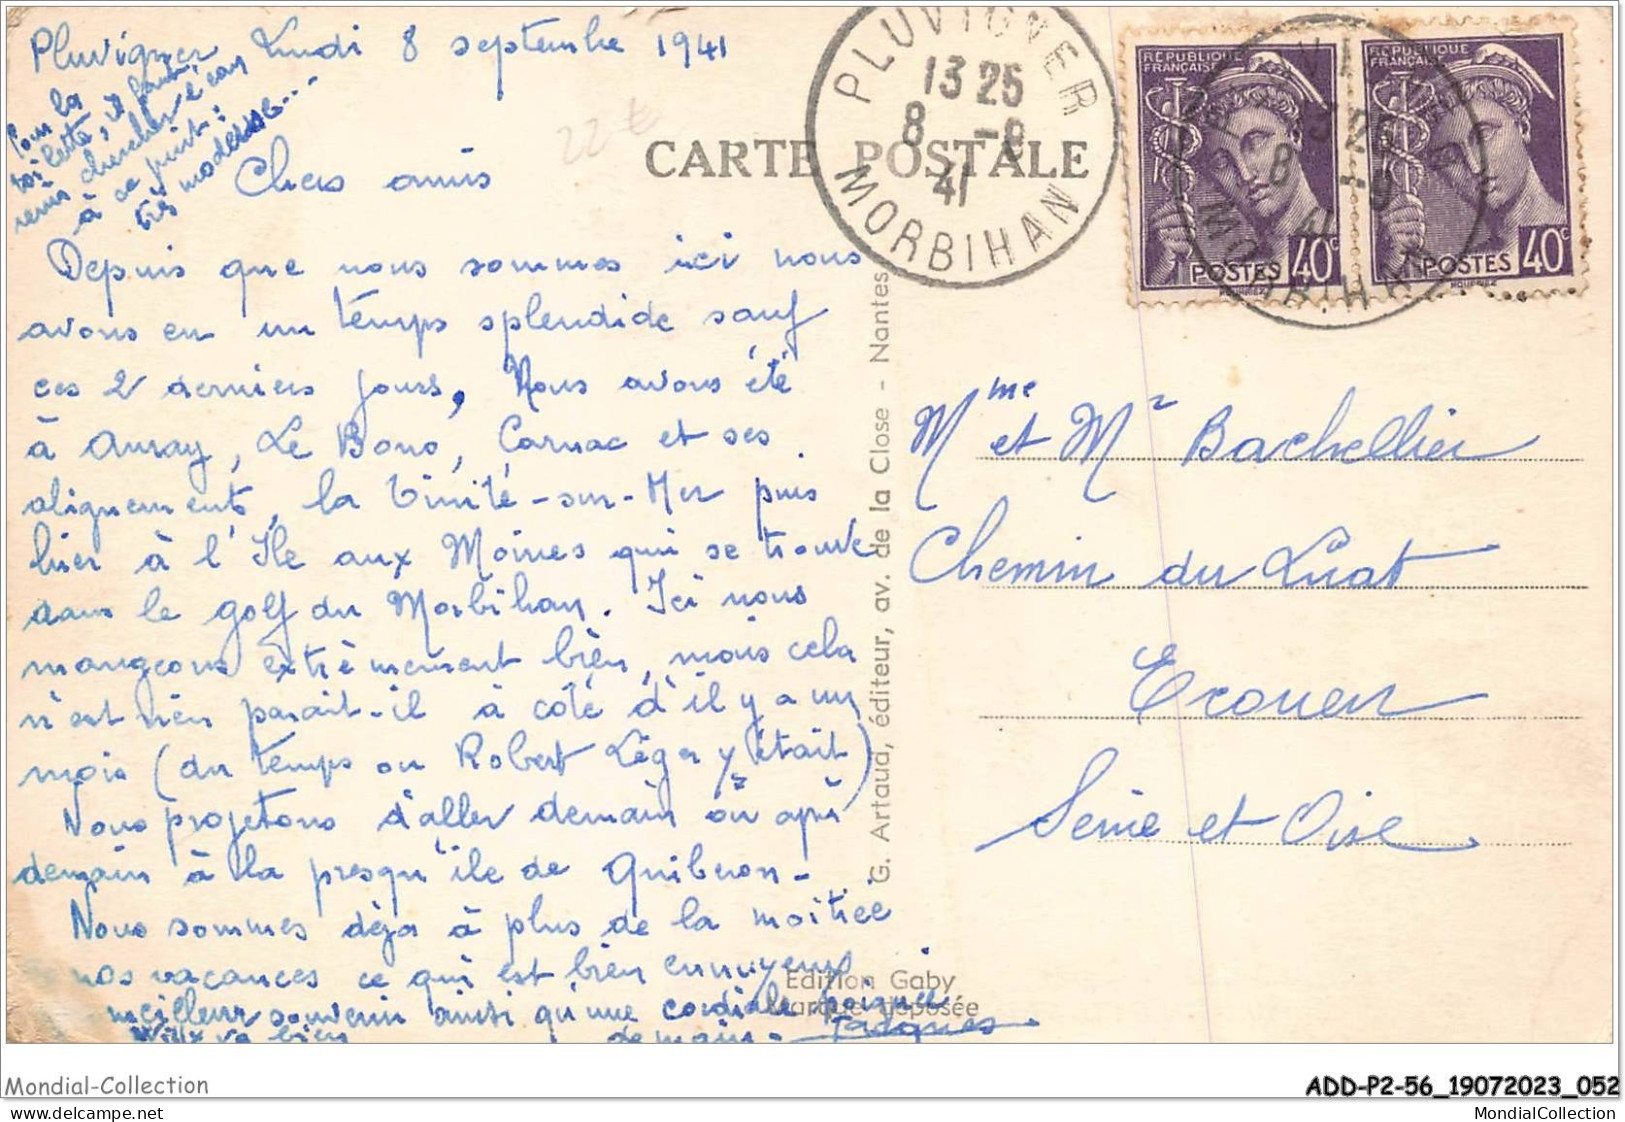 Pluvigner Lundi 8 septembre 1941
Pour la
toilette, il faut
venir chercher l'eau
à ce puit :
très modeste...
22 €
CARTE POSTALE
PLUVIGNER
13 25
8 -9
41
MORBIHAN
REPUBLIQUE
FRANÇAISE
POSTES 40c
REPUBLIQUE
FRANÇAISE
POSTES 40c
Chers amis
Depuis que nous sommes ici nous
avons eu un temps splendide sauf
ces 2 derniers jours, Nous avons été
à Auray, Le Bono, Carnac et ses
alignements, la Trinité-sur-Mer puis
hier à l'Ile aux Moines qui se trouve
dans le golf du Morbihan. Ici nous
mangeons extrêmement bien, mais cela
n'est rien parait-il à côté d'il y a un
mois (du temps ou Robert Léger y était)
Nous projetons d'aller demain ou après
demain à la presqu'île de Quiberon-
Nous sommes déja à plus de la moitiée
nos vacances ce qui est bien ennuyeux
meilleur souvenir ainsi qu'une cordiale poignée
va bien de main - Jacques
G. Artaud, éditeur, av. de la Close - Nantes
Edition Gaby
Marque déposée
Mme et Mr Bachellier
Chemin du Luat
Ecouen
Seine et Oise
Mondial-Collection
ADD-P2-56_19072023_052
www.delcampe.net
MondialCollection